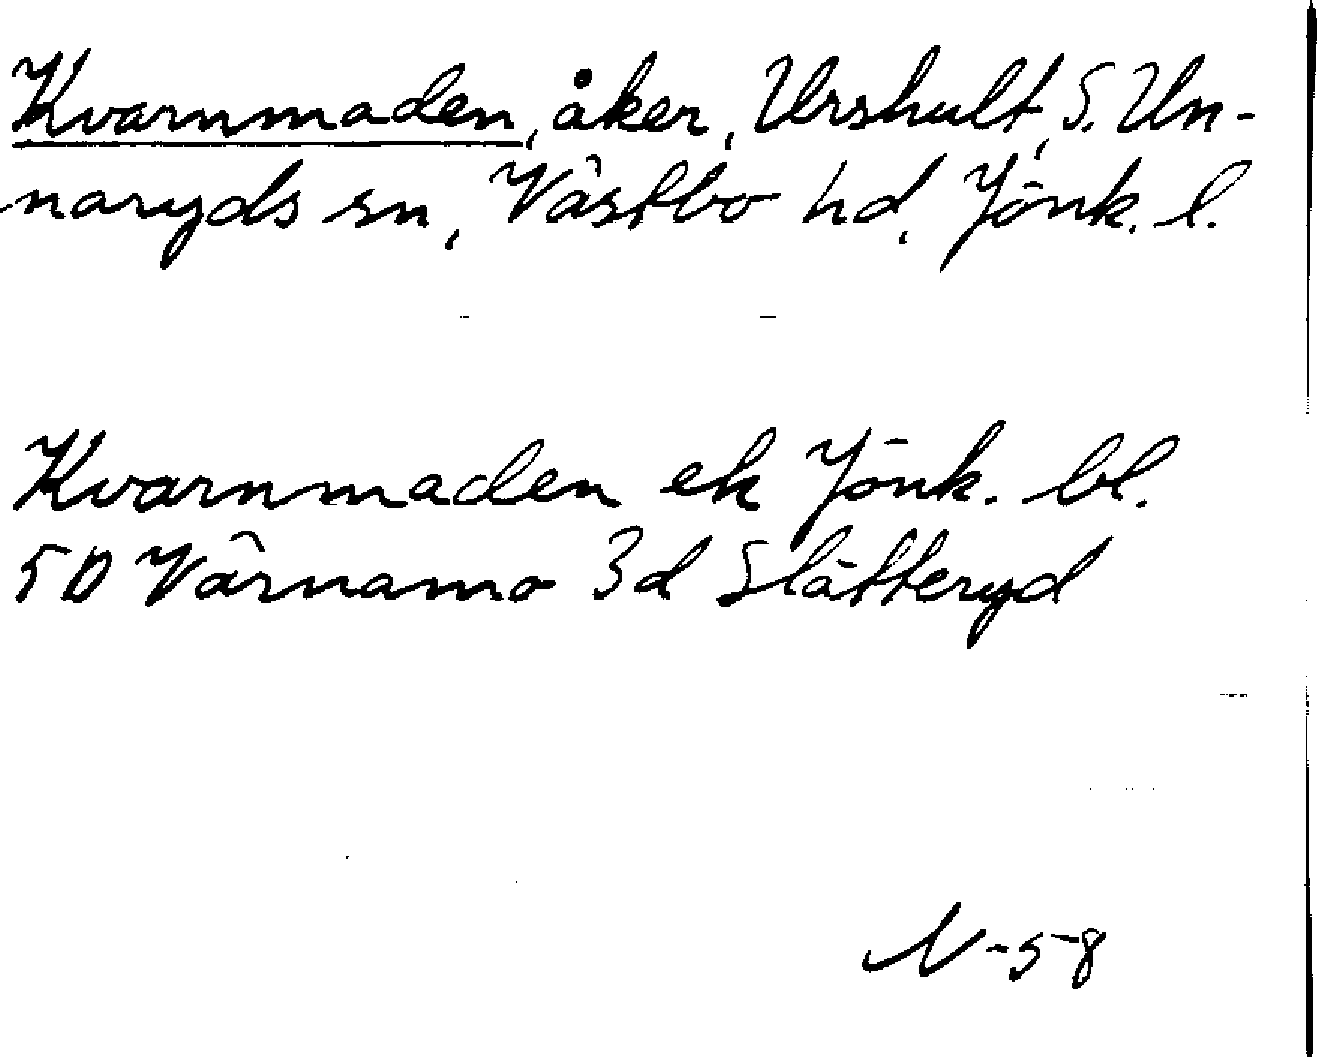 Kvarnmaden, åker, Urshult, S. Un-
naryds sn, Västbo hd, Jönk. l.
Kvarnmaden ek Jönk. bl.
5D Värnamo 3d Slätteryd
N-5-8